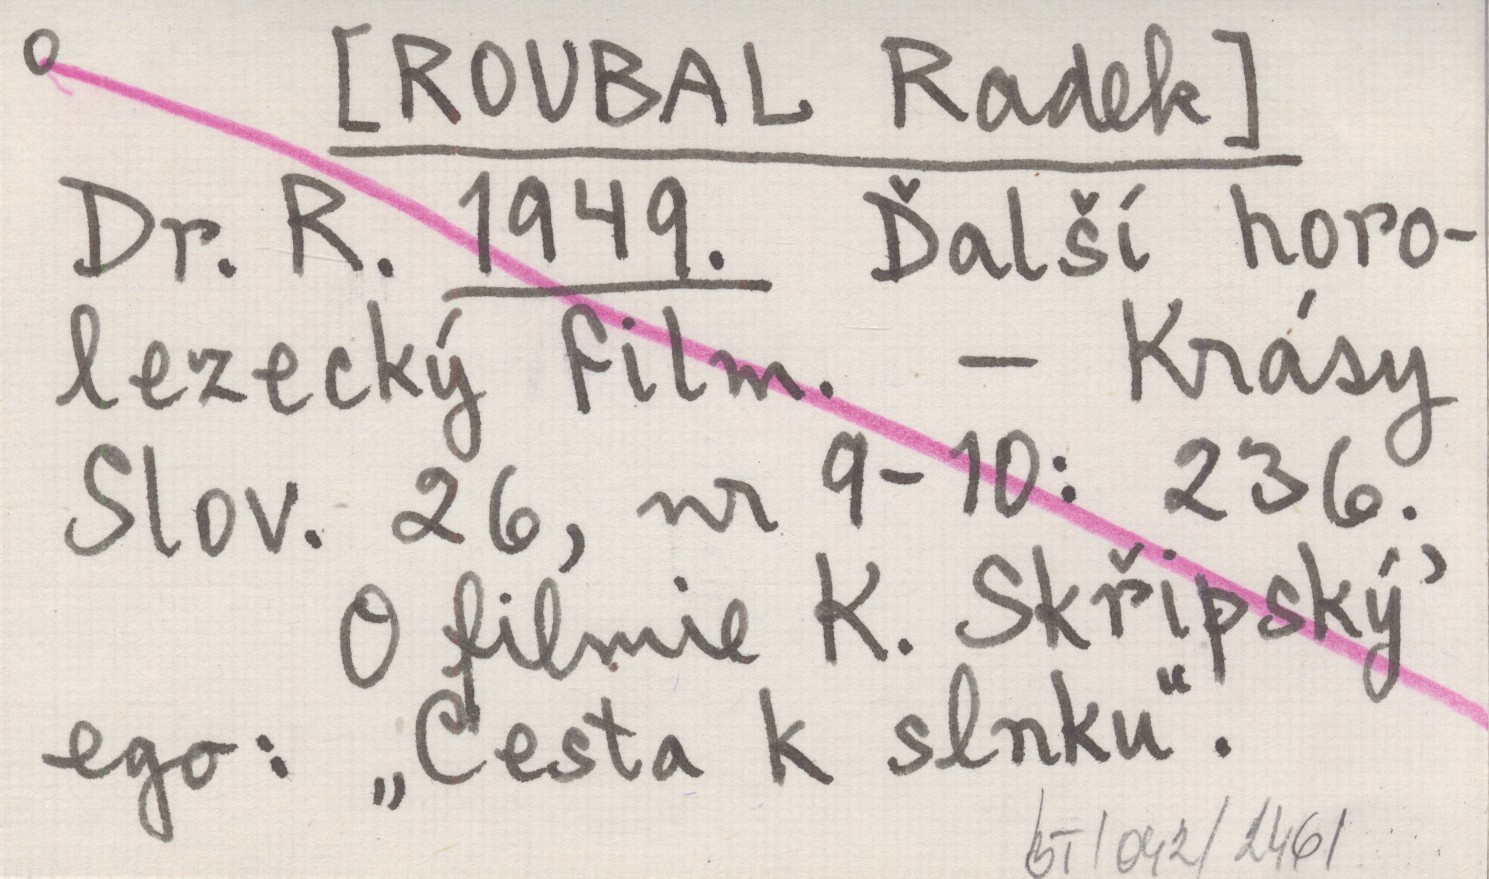 o [ROUBAL Radek]
Dr. R. 1949. Ďalší horo-
lezecký film. — Krásy
Slov. 26, nr 9-10: 236.
O filmie K. Skřipský'
ego: „Cesta k slnku".
BT/042/2461